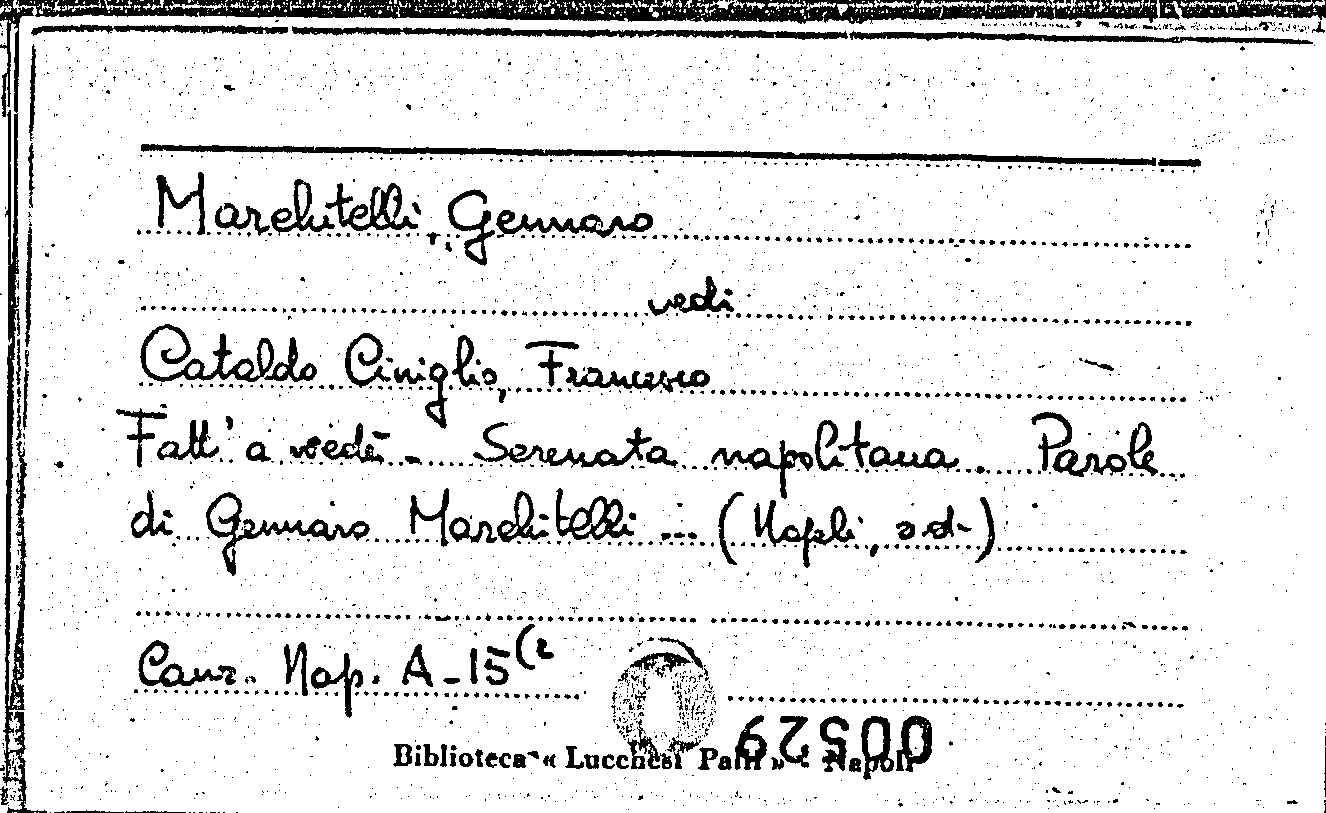 Marchitelli, Gennaro
vedi
Cataldo Ciniglio, Francesco
Fatt' a vedè - Serenata napolitana. Parole
di Gennaro Marchitelli ... (Napoli, s.d.)
Canz. Nap. A-15(2
Biblioteca « Lucchesi Palli » - Napoli
00529